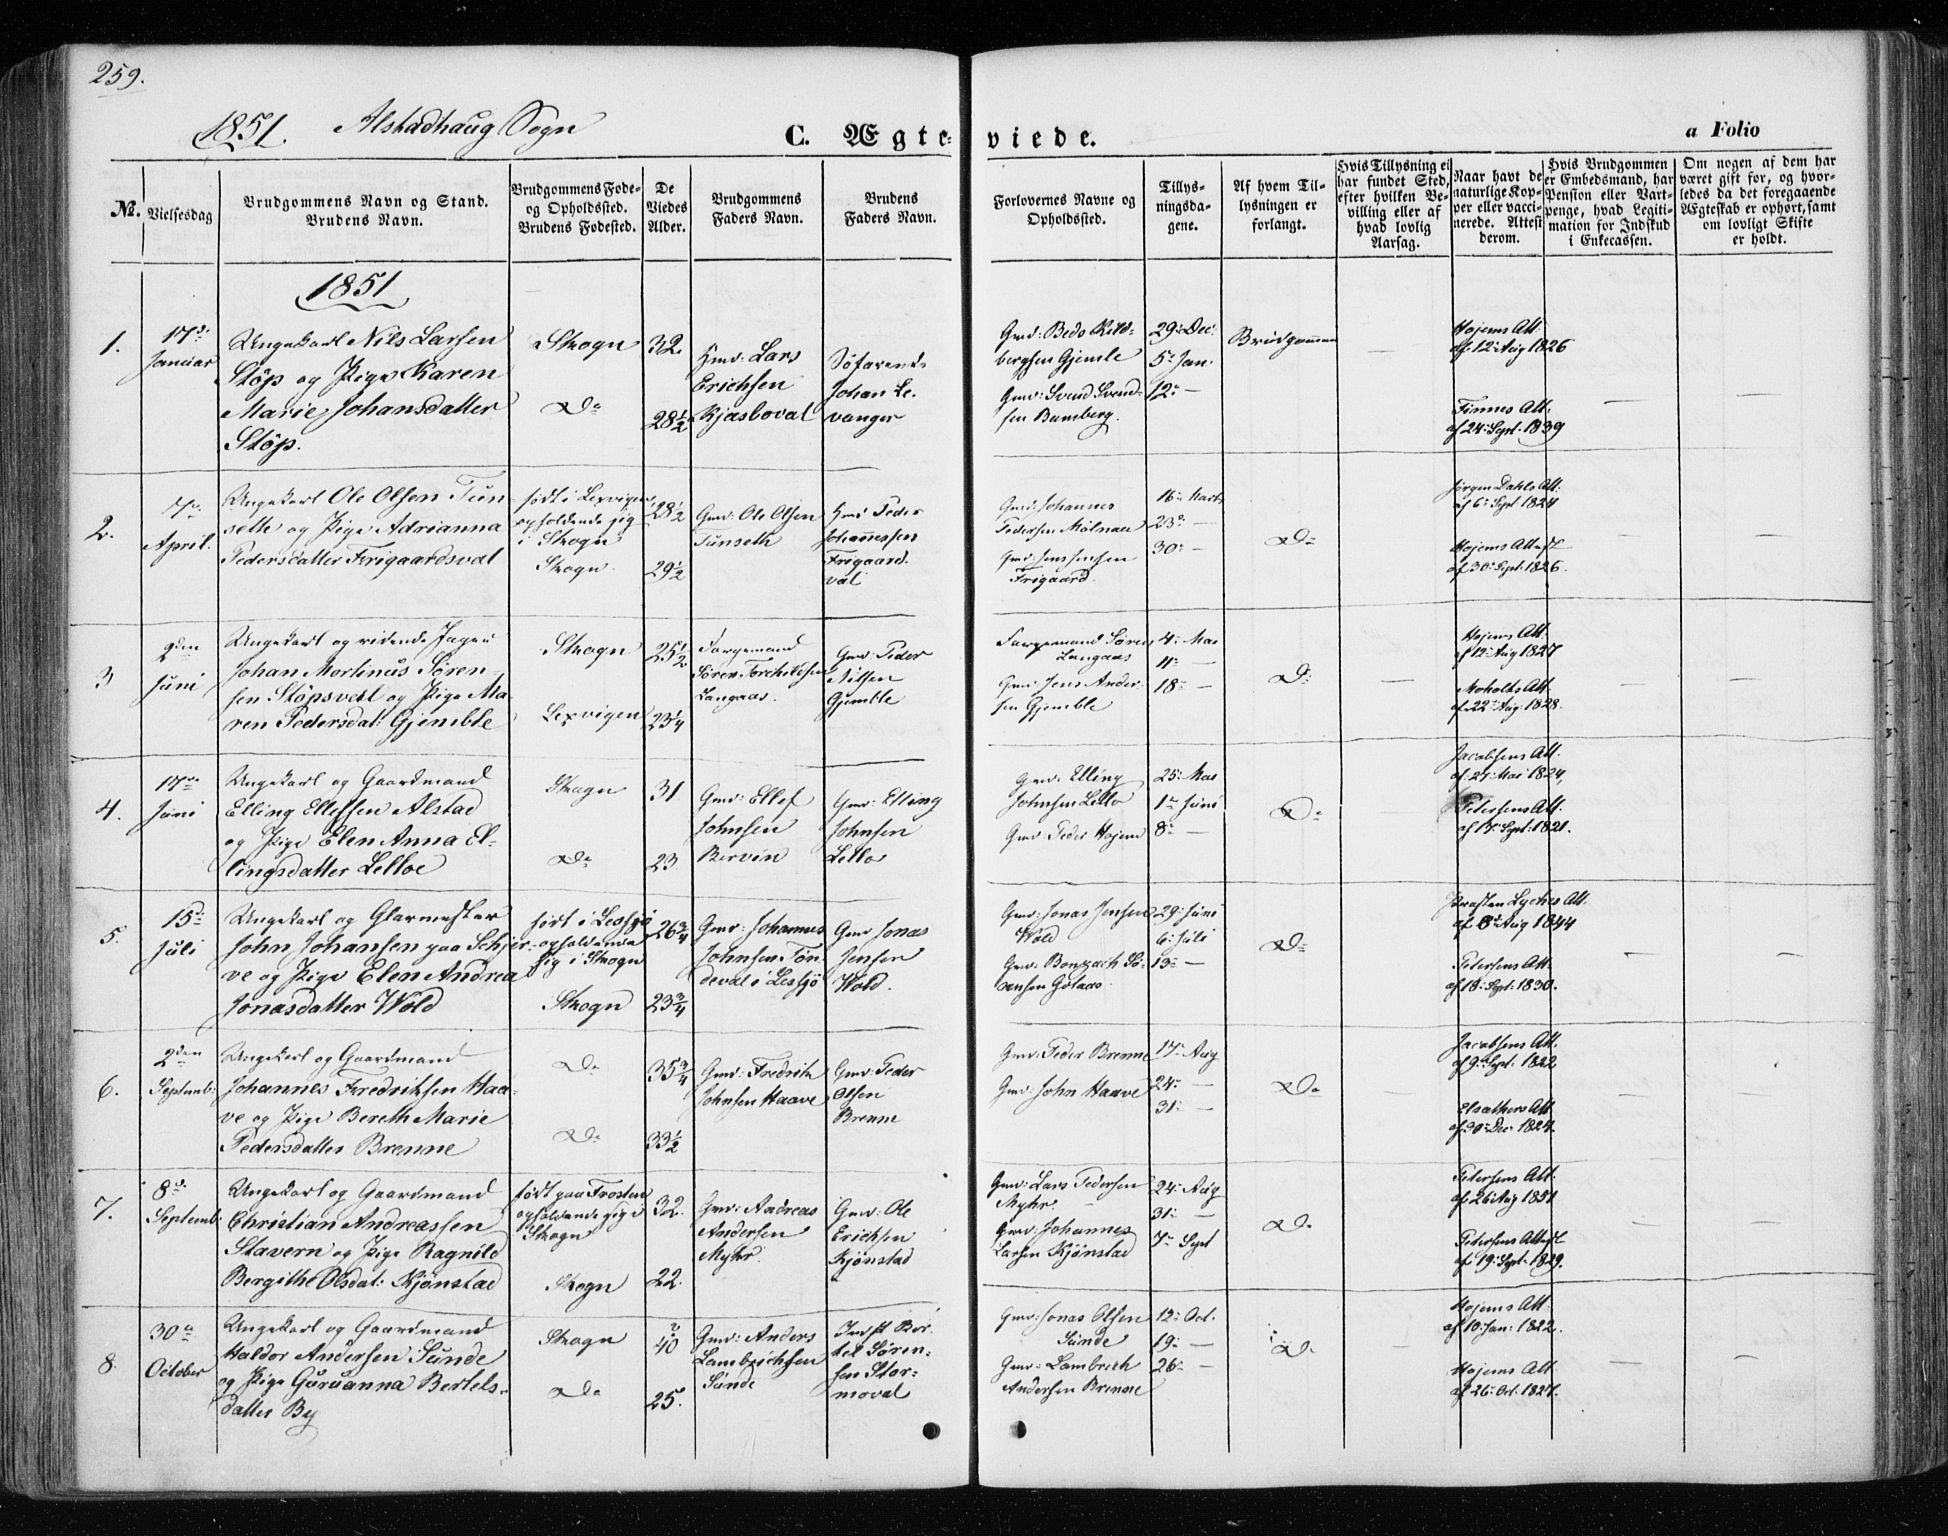 259.
1851. Alstadhaug Sogn
C. Ægte-
viede.
a Folio
No.
Vielsesdag
Brudgommens Navn og Stand.
Brudens Navn.
Brudgommens Føde-
og Opholdssted.
Brudens Fødested.
De
Viedes
Alder.
Brudgommens
Faders Navn.
Brudens
Faders Navn.
Forlovernes Navne og
Opholdssted.
Tillys-
ningsda-
gene.
Af hvem Til-
lysningen er
forlangt.
Hvis Tillysning ei
har fundet Sted,
efter hvilken Be-
villing eller af
hvad lovlig
Aarsag.
Naar havt de
naturlige Kop-
per eller vacci-
nerede. Attest
derom.
Hvis Brudgommen
er Embedsmand, har
Pension eller Vart-
penge, hvad Legiti-
mation for Indskud
i Enkecassen.
Om nogen af dem har
været gift før, og hvor-
ledes da det foregaaende
Ægteskab er ophørt, samt
om lovligt Skifte
er holdt.
1851
1.
17de
Januar
Ungekarl Nils Larsen
Støp og Pige Karen
Marie Johansdatter
Støp.
Skogn
Do
32.
28 1/2
Hmd: Lars
Erichsen
Kjasboval
Søfarende
Johan Le-
vanger
Gmd:
bergsen Gjemle
Gmd: Svend Svend-
sen Bamberg.
29: Dec:
5te Jan.
12: —
Brudgommen
—
Hojems Att.
af 12: Aug 1826
Finnes Att.
af 24: Sept. 1839
—
—
2.
7de
April.
Ungekarl Ole Olsen Tun-
seth og Pige Adrianna
Pedersdatter Frigaardsval
født i Lexvigen
opholdende sig
i Skogn
Skogn.
28 1/2
29 1/2
Gmd: Ole Olsen
Tunseth
Hmd Peder
Johannessen
Frigaard-
val
Gmd: Johannes
Pedersen Mølnaa
Gmd: Jens Jensen
Frigaard.
16: Marts
23: —
30: —
Do
—
Jørgen Dahls Att.
af 6: Sept 1824
Hojems Attest
af 30: Sept: 1826.
—
—
3
2den
Juni
Ungekarl og ridende Jæger
Johan Mortinus Søren-
sen Støpsval og Pige Ma-
ren Pedersdat: Gjemble
Skogn
Lexvigen
25 1/2
23 1/4
Fargemand
Søren Torchildsen
Langaas.
Gmd: Peder
Nilsen
Gjemble
Fargemand Søren
Langaas
Gmd: Jens Ander-
sen Gjemble
4: Mai
11: —
18: —
Do
—
Hojems Att.
af 12: Aug 1827
Moholts Att.
af 22: Aug: 1828.
—
—
4.
17de
Juni
Ungekarl og Gaardmand
Elling Ellefsen Alstad
og Pige Elen Anna El-
lingsdatter Lelloe
Skogn
Do
31
23
Gmd: Ellef
Johnsen
Bervin
Gmd: Elling
Johnsen
Lello
Gmd: Elling
Johnsen Lello
Gmd Peder Hojem
25: Mai
1te Juni
8: —
Do
—
Jacobsens Att.
af 27: Mai 1824,
Petersens Att.
af 17: Sept: 1821.
—
—
5.
15de
Juli
Ungekarl og Glarmester
John Johansen paa Schjer-
ve og Pige Elen Andrea
Jonasdatter Wold
født i Lessjø
opholdende
sig i Skogn
Skogn
26 3/4
23 3/4
Gmd: Johannes
Johnsen Tøn-
deval i Lessjø
Gmd Jonas
Jensen
Wold.
Gmd: Jonas Jensen
Wold
Gmd: Bonsach Sø-
rensen Gotaas.
29: Juni
6: Juli
13: —
Do
—
Provsten Lyches Att.
af 8de Aug 1844
Petersens Att.
af 18: Sept: 1830.
—
—
6.
2den
Septemb:
Ungekarl og Gaardmand
Johannes Fredriksen Haa-
ve og Pige Bereth Marie
Pedersdatter Brenne
Do
Do
35 3/4
33 1/2
Gmd: Fredrik
Johnsen Haave
Gmd: Peder
Olsen
Brenne
Gmd: Peder Brenne
Gmd: John Haave
17: Aug
24: —
31: —
Do
—
Jacobsens Att.
af 9: Sept: 1822
Elsathers Att.
af 30: Dec: 1824.
—
—
7.
8de
Septemb:
Ungekarl og Gaardmand
Christian Andreassen
Stavern og Pige Ragnild
Bergithe Olsdat: Kjønstad
født paa Frosten
opholdende sig i
Skogn
Skogn
32.
22.
Gmd: Andreas
Andersen
Myhr.
Gmd: Ole
Erichsen
Kjønstad
Gmd: Lars Pedersen
Myhr.
Gmd: Johannes
Larsen Kjønstad
24: Aug
31: —
7de Sept
Do
—
Petersens Att.
af 26: Aug 1851
Petersens Attest
af 19: Sept: 1829.
—
—
8.
30te
October
Ungekarl og Gaardmand
Haldor Andersen Sunde
og Pige Guruanna Bertels-
datter By
Skogn
Do
40
25.
Gmd: Anders
Lambrichsen
Sunde
Indst Ber-
tel Søren-
sen Stor-
moval
Gmd: Jonas Olsen
Sunde
Gmd: Lambrich
Andersen Brenne
12: Oct.
19: —
26: —
Do
—
Hojems Att.
af 10: Jan: 1822.
Hojems Att.
af 26: Oct. 1827.
—
—